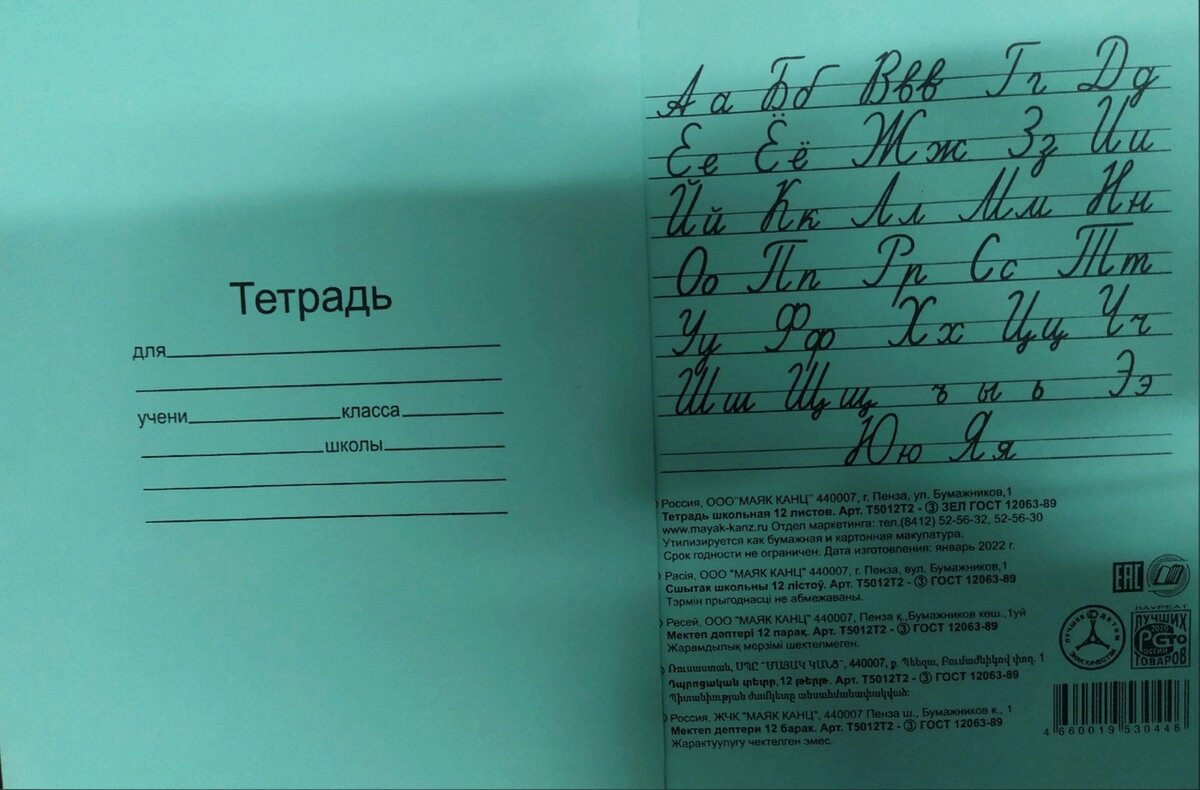 Тетрадь
для
учени класса
школы
Аа Бб Ввв Гг Дд
Ее Ёё Жж Зз Ии
Йй Кк Лл Мм Нн
Оо Пп Рр Сс Тт
Уу Фф Хх Цц Чч
Шш Щщ ъ ы ь Ээ
Юю Яя
Россия, ООО"МАЯК КАНЦ" 440007, г. Пенза, ул. Бумажников,1
Тетрадь школьная 12 листов. Арт. Т5012Т2 - ③ ЗЕЛ ГОСТ 12063-89
www.mayak-kanz.ru Отдел маркетинга: тел.(8412) 52-56-32, 52-56-30
Утилизируется как бумажная и картонная макулатура.
Срок годности не ограничен. Дата изготовления: январь 2022 г.
Расія, ООО "МАЯК КАНЦ" 440007, г. Пенза, вул. Бумажников,1
Сшытак школьны 12 лістоў. Арт. Т5012Т2 - ③ ГОСТ 12063-89
Тэрмін прыгоднасці не абмежаваны.
Ресей, ООО "МАЯК КАНЦ" 440007, Пенза қ.,Бумажников көш.,1үй
Мектеп дәптері 12 парақ. Арт. Т5012Т2 - ③ ГОСТ 12063-89
Жарамдылық мерзімі шектелмеген.
Ռուսաստան, ՍՊԸ "ՄԱՅԱԿ ԿԱՆՑ", 440007, ք. Պենզա, Բումաժնիկով փող. 1
Դպրոցական տետր,12 թերթ. Арт. Т5012Т2 - ③ ГОСТ 12063-89
Պիտանիության ժամկետը անսահմանափակված:
Россия, ЖЧК "МАЯК КАНЦ", 440007 Пенза ш., Бумажников к., 1
Мектеп дептери 12 барак. Арт. Т5012Т2 - ③ ГОСТ 12063-89
Жарактуулугу чектелген эмес.
EAC
ЛУЧШЕЕ ДЕТЯМ
ЗНАК КАЧЕСТВА
ЛАУРЕАТ
ЛУЧШИХ
2020
РСТО
РОССИИ
ТОВАРОВ
4 660019 530446